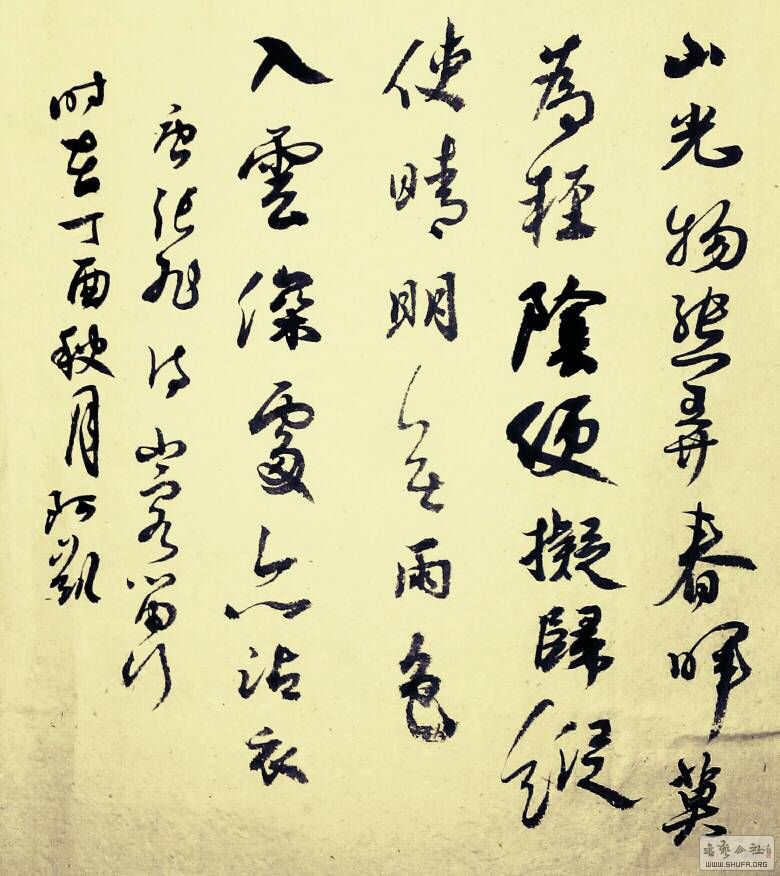 山光物態弄春暉莫
為輕陰便擬歸縱
使晴明無雨色
入雲深處亦沾衣
唐張旭詩山客留行
时在丁酉秋月阿凱
書藝公社
WWW.SHUFA.ORG